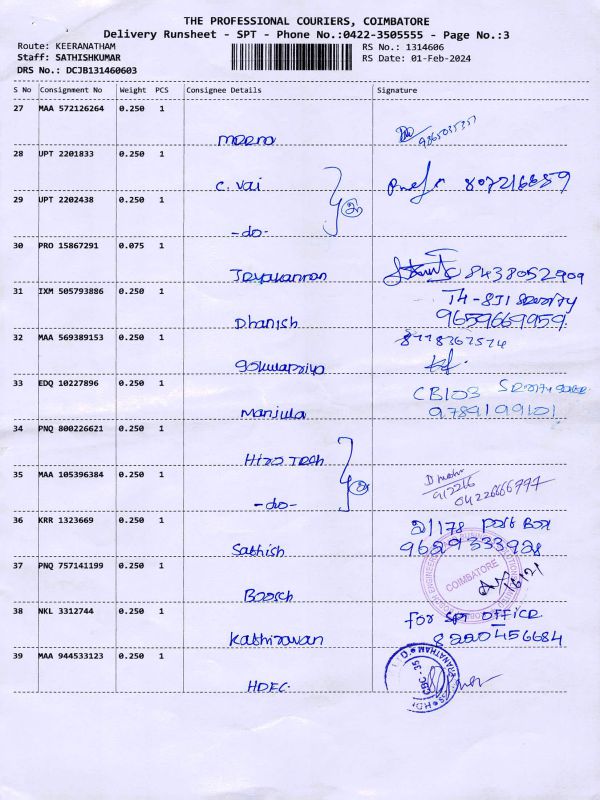 THE PROFESSIONAL COURIERS, COIMBATORE
Delivery Runsheet - SPT - Phone No.:0422-3505555 - Page No.:3
Route: KEERANATHAM
RS No.: 1314606
Staff: SATHISHKUMAR
RS Date: 01-Feb-2024
DRS No.: DCJB131460603
S No Consignment No Weight PCS Consignee Details Signature
27 MAA 572126264 0.250 1
meena 9865035357
28 UPT 2201833 0.250 1
C. Vai 807216659
29 UPT 2202438 0.250 1
-do-
30 PRO 15867291 0.075 1
Jeyakannan 8438052909
31 IXM 505793886 0.250 1
Dhanish 9659669959
32 MAA 569389153 0.250 1
8778367574
gokulapriya
33 EDQ 10227896 0.250 1
CB103
Manjula 9789199101
34 PNQ 800226621 0.250 1
Hiro Tech
35 MAA 105396384 0.250 1
04226666777
-do-
36 KRR 1323669 0.250 1
21/178 Post Box
Sathish 9629333928
37 PNQ 757141199 0.250 1
COIMBATORE
Bosch
38 NKL 3312744 0.250 1
for SPT OFFICE
Kathiravan 8220456684
39 MAA 944533123 0.250 1
HDFC